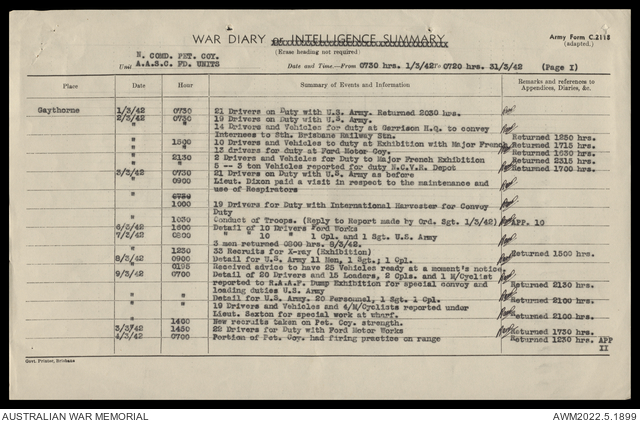 WAR DIARY or INTELLIGENCE SUMMARY
Army Form C.2118
(adapted.)
(Erase heading not required)
N. COMD. PET. COY.
Unit A.A.S.C. FD. UNITS
Date and Time.—From 0730 hrs. 1/3/42 to 0720 hrs. 31/3/42 (Page I)
Place Date Hour Summary of Events and Information Remarks and references to Appendices, Diaries, &c.
Gaythorne 1/3/42 0730 21 Drivers on Duty with U.S. Army. Returned 2030 hrs.
2/3/42 0730 19 Drivers on Duty with U.S. Army.
" " 14 Drivers and Vehicles for duty at Garrison H.Q. to convey
Internees to Sth. Brisbane Railway Stn. Returned 1250 hrs.
" 1500 10 Drivers and Vehicles to duty at Exhibition with Major French Returned 1715 hrs.
" " 13 drivers for duty at Ford Motor Coy. Returned 1630 hrs.
" 2130 2 Drivers and Vehicles for Duty to Major French Exhibition Returned 2315 hrs.
" " 5 -- 3 ton Vehicles reported for duty N.C.V.R. Depot Returned 1700 hrs.
3/3/42 0730 21 Drivers on Duty with U.S. Army as before
" 0900 Lieut. Dixon paid a visit in respect to the maintenance and
use of Respirators
0730
" 1000 19 Drivers for Duty with International Harvester for Convoy
Duty
" 1030 Conduct of Troops. (Reply to Report made by Ord. Sgt. 1/3/42) APP. 10
6/3/42 1600 Detail of 10 Drivers Ford Works
7/3/42 0800 " " 10 " 1 Cpl. and 1 Sgt. U.S. Army
3 men returned 0800 hrs. 8/3/42.
" 1230 33 Recruits for X-ray (Exhibition) Returned 1500 hrs.
8/3/42 0900 Detail for U.S. Army 11 Men, 1 Sgt., 1 Cpl.
" 0195 Received advice to have 25 Vehicles ready at a moment's notice
9/3/42 0700 Detail of 20 Drivers and 15 Loaders, 2 Cpls. and 1 M/Cyclist
reported to R.A.A.F. Dump Exhibition for special convoy and
loading duties U.S. Army Returned 2130 hrs.
" " Detail for U.S. Army. 20 Personnel, 1 Sgt. 1 Cpl. Returned 2100 hrs.
" " 19 Drivers and Vehicles and 4/M/Cyclists reported under
Lieut. Sexton for special work at wharf. Returned 2100 hrs.
" 1400 New recruits taken on Pet. Coy. strength.
3/3/42 1450 22 Drivers for Duty with Ford Motor Works Returned 1730 hrs.
4/3/42 0700 Portion of Pet. Coy. had firing practice on range Returned 1230 hrs. APP
II
Govt. Printer, Brisbane
AUSTRALIAN WAR MEMORIAL
AWM2022.5.1899